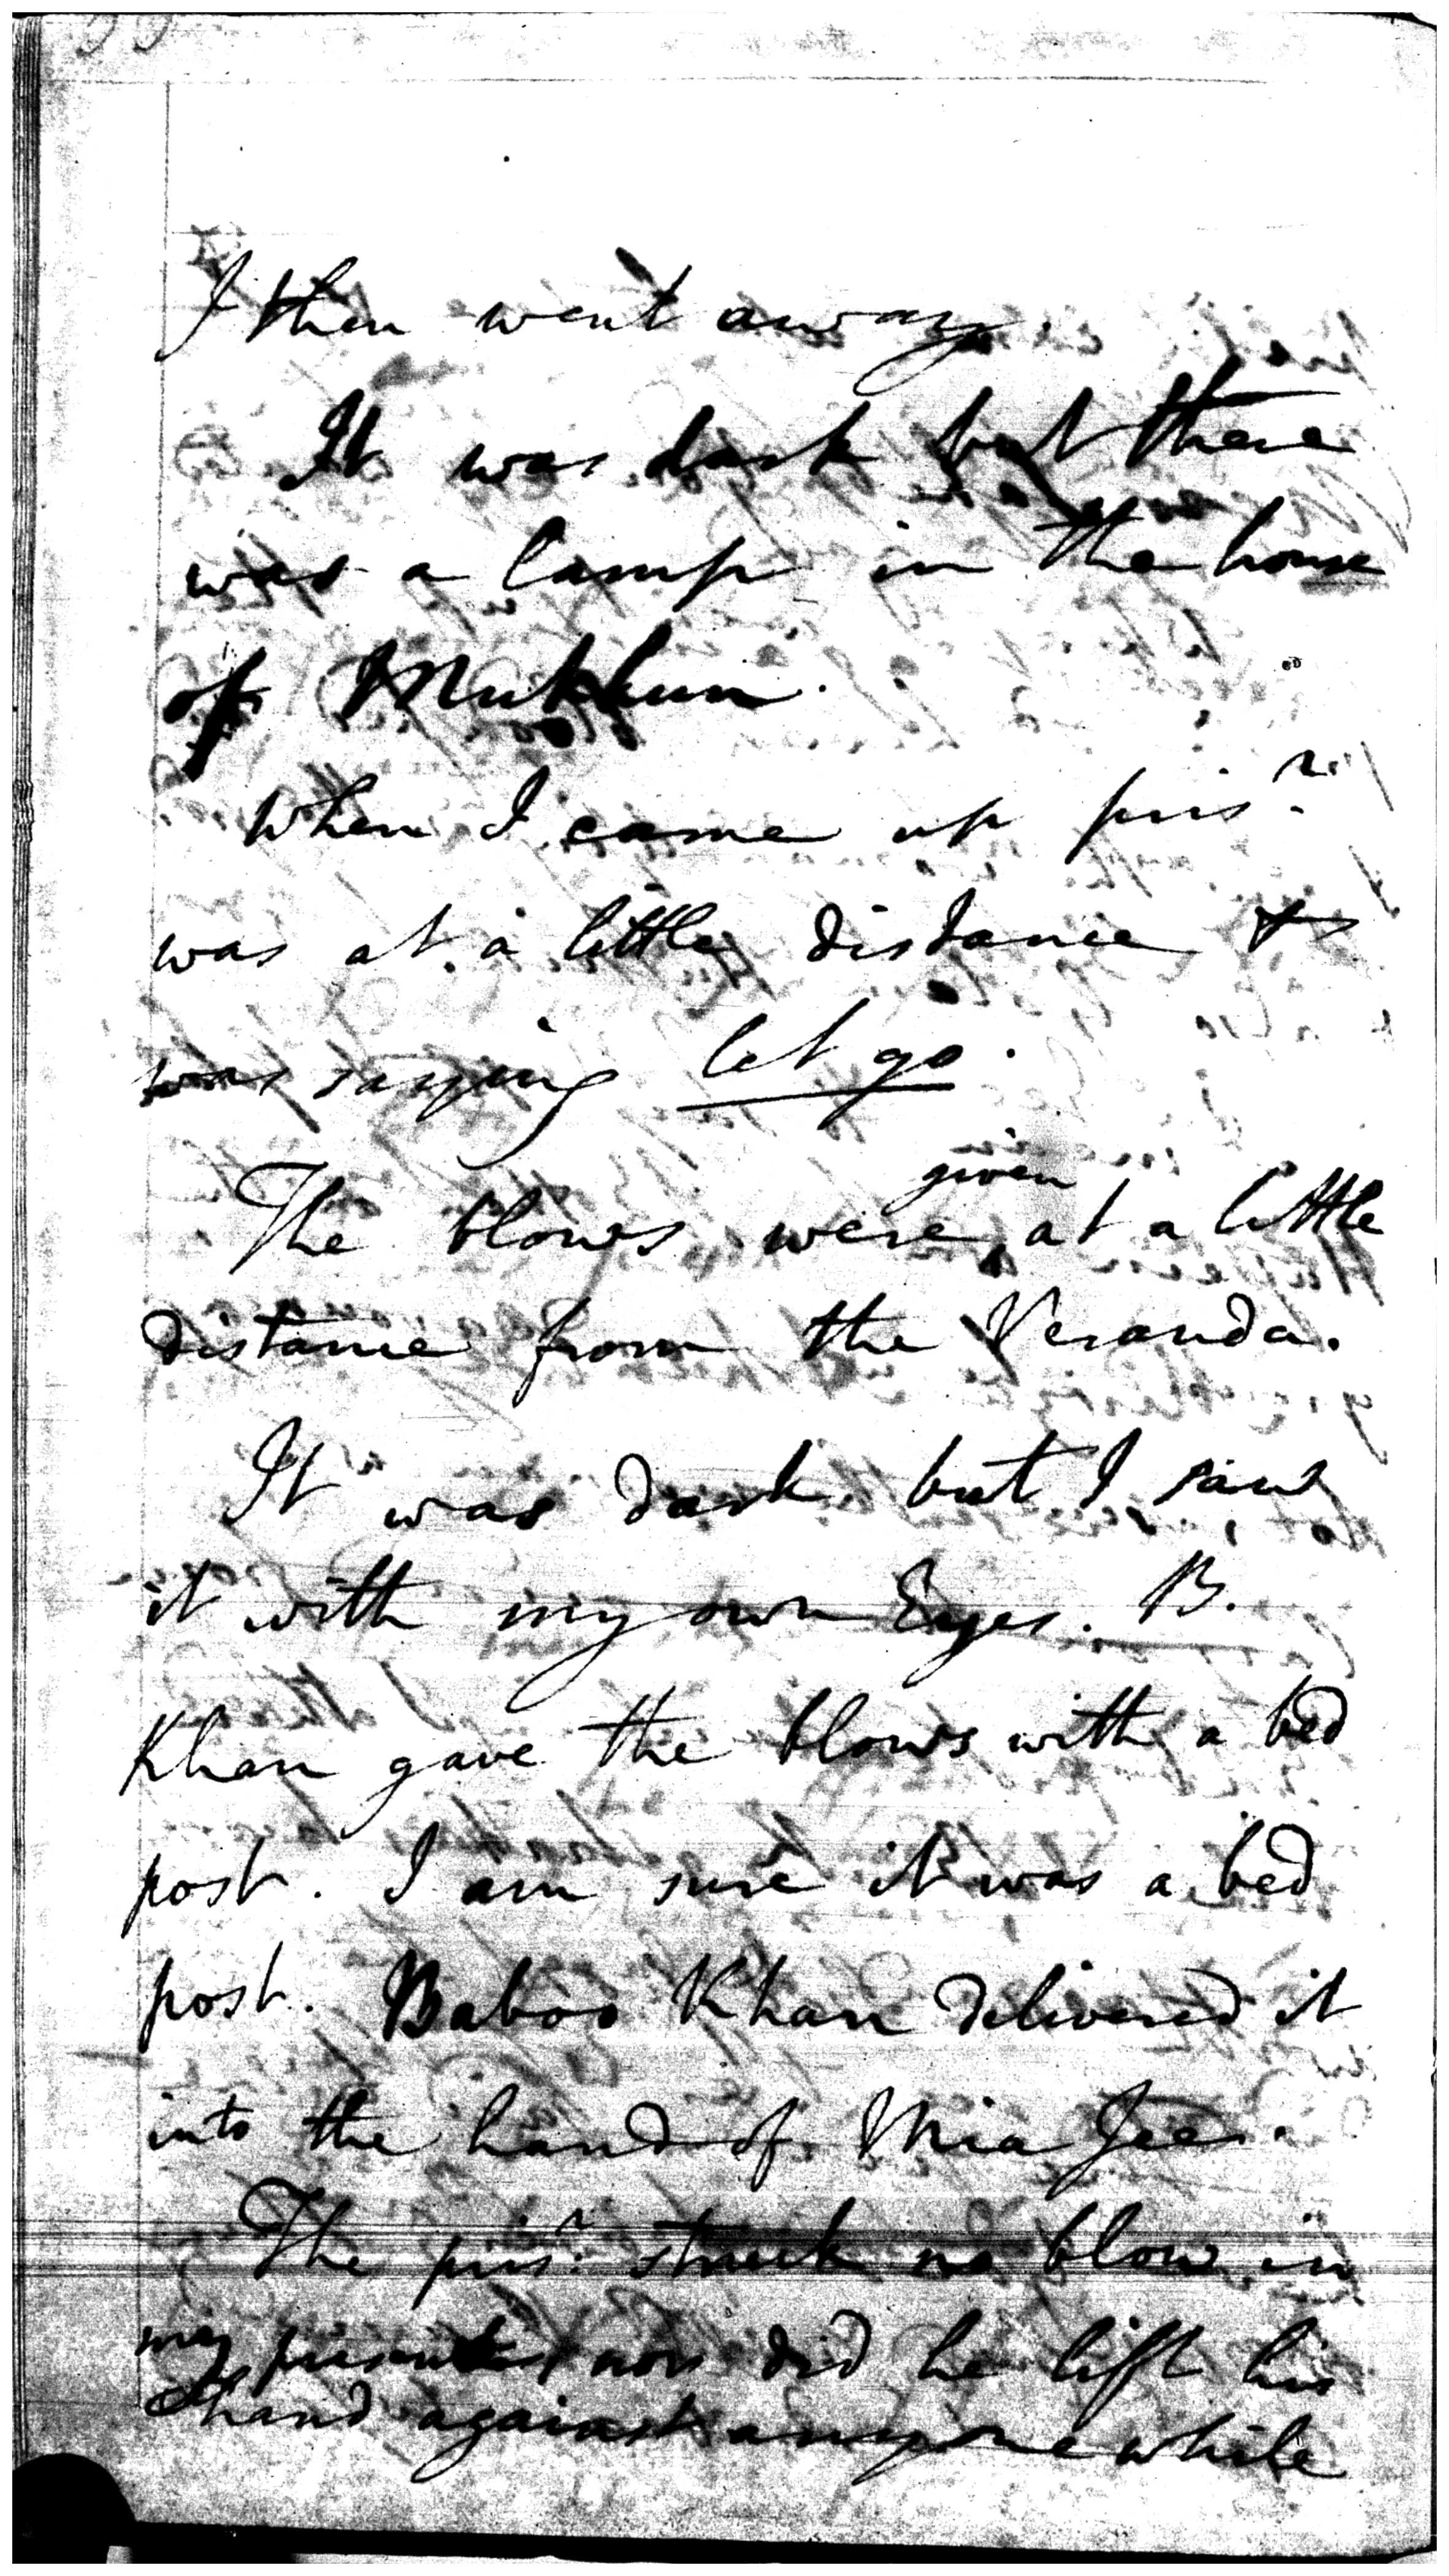 I then went away.
It was dark but there
was a lamp in the house
of Mukhun.
When I came up pris.r
was at a little distance &
was saying let go.
given
The blows were ^ at a little
distance from the Veranda.
It was dark but I saw
it with my own Eyes. B.
Khan gave the blows with a bed
post. I am sure it was a bed
post. Baboo Khan delivered it
into the hand of Mia Jee.
The pris.r struck no blow in
my presence, nor did he lift his
hand against anyone while